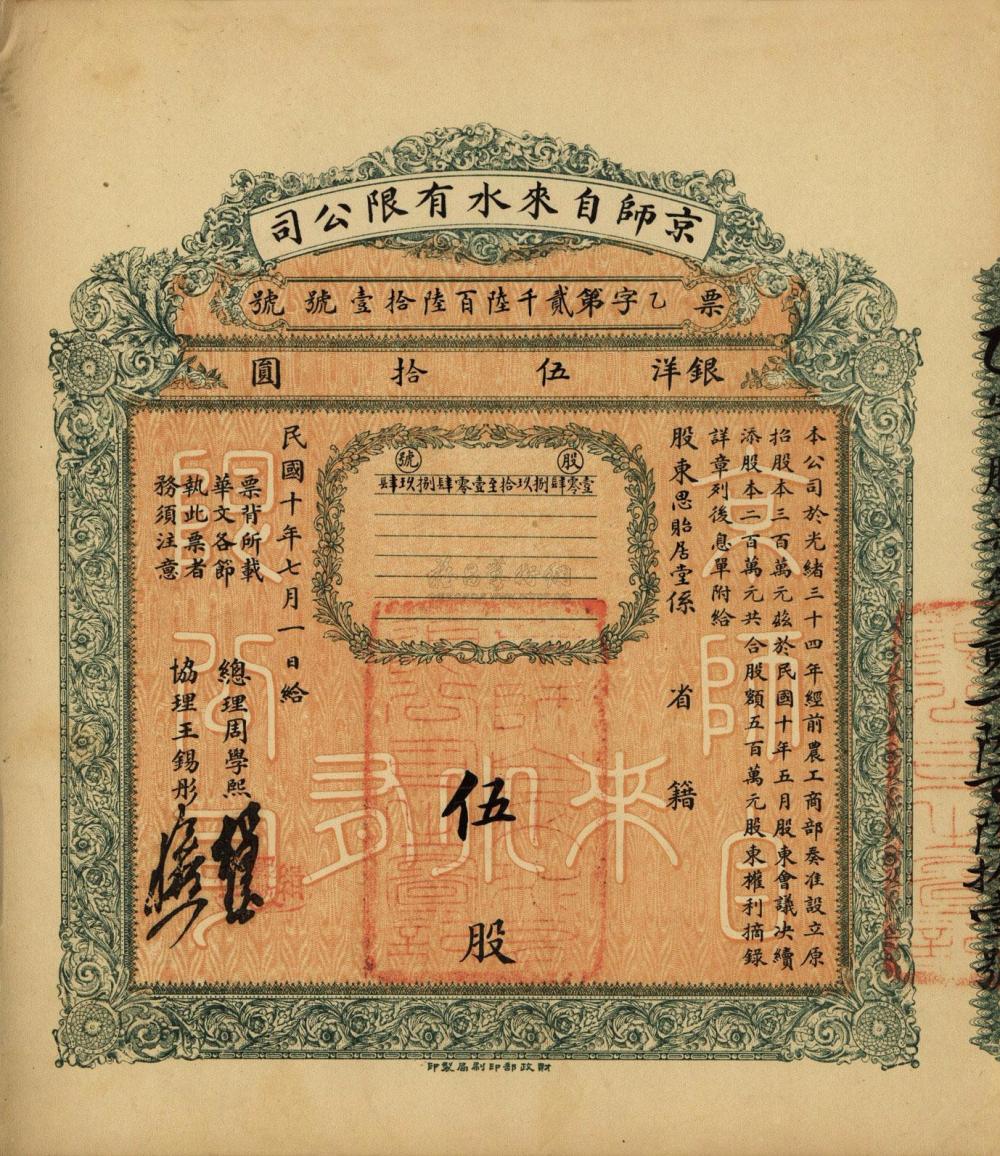 京師自來水有限公司
票 乙字第貳千陸百陸拾壹號 號
銀洋 伍 拾 圓
本公司於光緒三十四年經前農工商部奏准設立原
招股本三百萬元茲於民國十年五月股東會議决續
添股本二百萬元共合股額五百萬元股東權利摘錄
詳章列後息單附給
股東思貽居堂係 省 籍
股 號
壹零肆捌玖拾至壹零肆捌玖肆
伍
股
民國十年七月一日給
總理周學熙
協理王錫彤
票背所載
華文各節
執此票者
務須注意
京師自來水有限公司
財政部印刷局製印